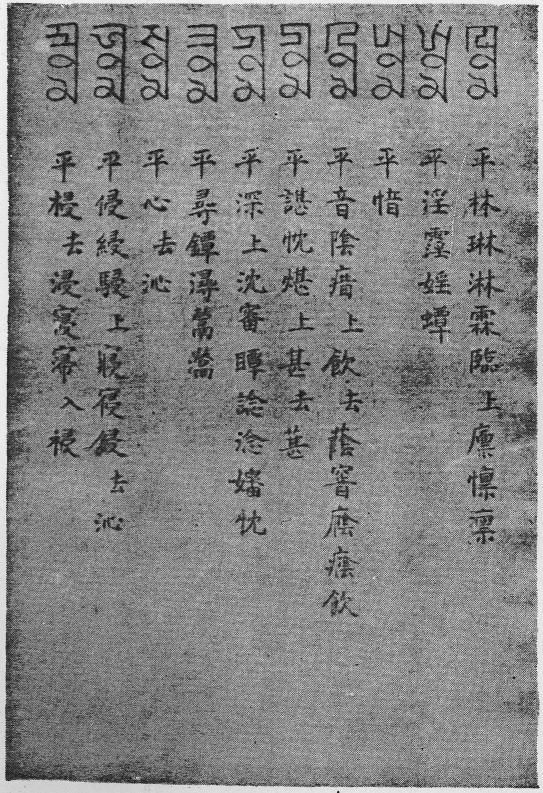 ꡒꡞꡏ 平祲去浸寖㓎入祲
ꡑꡞꡏ 平侵綅駸上寢寑鋟去沁
ꡛꡞꡏ 平心去沁
ꡕꡞꡏ 平尋鐔潯
ꡚꡞꡏ 平深上沈審瞫諗淰嬸忱
ꡚꡞꡏ 平諶忱煁上甚去葚
ꡖꡞꡏ 平音陰瘖上飲去蔭窨廕癊飲
平愔
ꡗꡞꡏ 平淫霪婬蟫
ꡙꡞꡏ 平林琳淋霖臨上廩懍稟